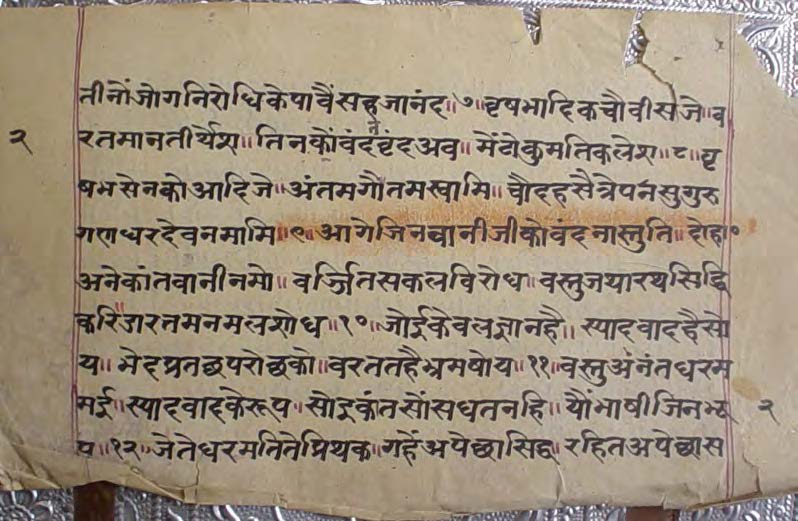 तीनोंजोगनिरोधिकेपावैंसहजानंद॥७॥वृषभादिकचौवीसजे॥व
२
रतमानतीर्थेश॥तिनकोंवंदनवृंदअव॥मेंटोकुमतिकलेश॥८॥वृ
षभसेनकोआदिजे॥अंतमगौतमस्वामि॥चौदहसैत्रेपनसुगुरु
गणधरदेवनमामि॥९॥आगेजिनवानीजीकोवंदनास्तुति॥दोहा॰
अनेकांतवानीनमो॥वर्ज्जितसकलविरोध॥वस्तुजथारथसिद्धि
करिडारतमनमलशोध॥१०॥जोईकेवलज्ञानहै॥स्यादवादहैसो
य॥भेदप्रतछपरोछको॥वरततहैभ्रमषोय॥११॥वस्तुअंनंतधरम
मई॥स्यादवादकेरूप॥सोइकंतसोंसधतनहि॥यौंभाषीजिनभू
२
प॥१२॥जेतेधरमतितेप्रिथक॥गहैंअपेछासिद्ध॥रहितअपेछास